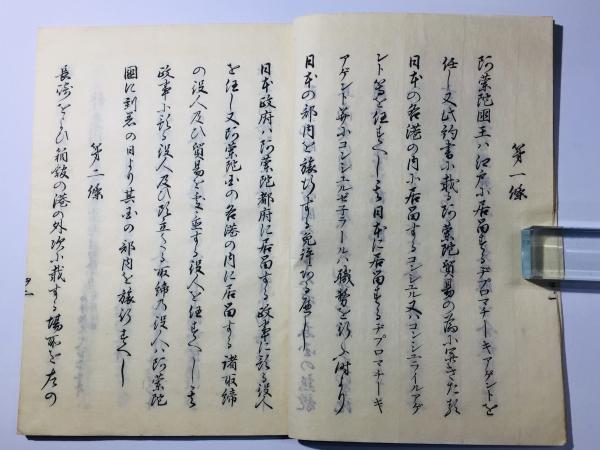 第一條
阿蘭陀國王ハ江戸に居留するヂプロマチーキアゲントを
任し又此約書に載る阿蘭陀貿易の為に開きたる
日本の各港の内に居留するコンシュル又ハコンシュライルアゲ
ント等を任すへし其日本に居留するヂプロマチーキ
アゲント并にコンシュルゼネラールハ職務を行ふ時より
日本の部内を旅行する免許ある
日本政府ハ阿蘭陀都府に居留する政事に預る役人
を任し又阿蘭陀國の各港の内に居留する諸取締
の役人及ひ貿易を処置する役人を任すへし其
政事に預る役人及ひ頭立たる取締の役人ハ阿蘭陀
國に到着の日より其国の部内を旅行すへし
第二條
長崎及ひ箱館の港の外次に載する場所を左の